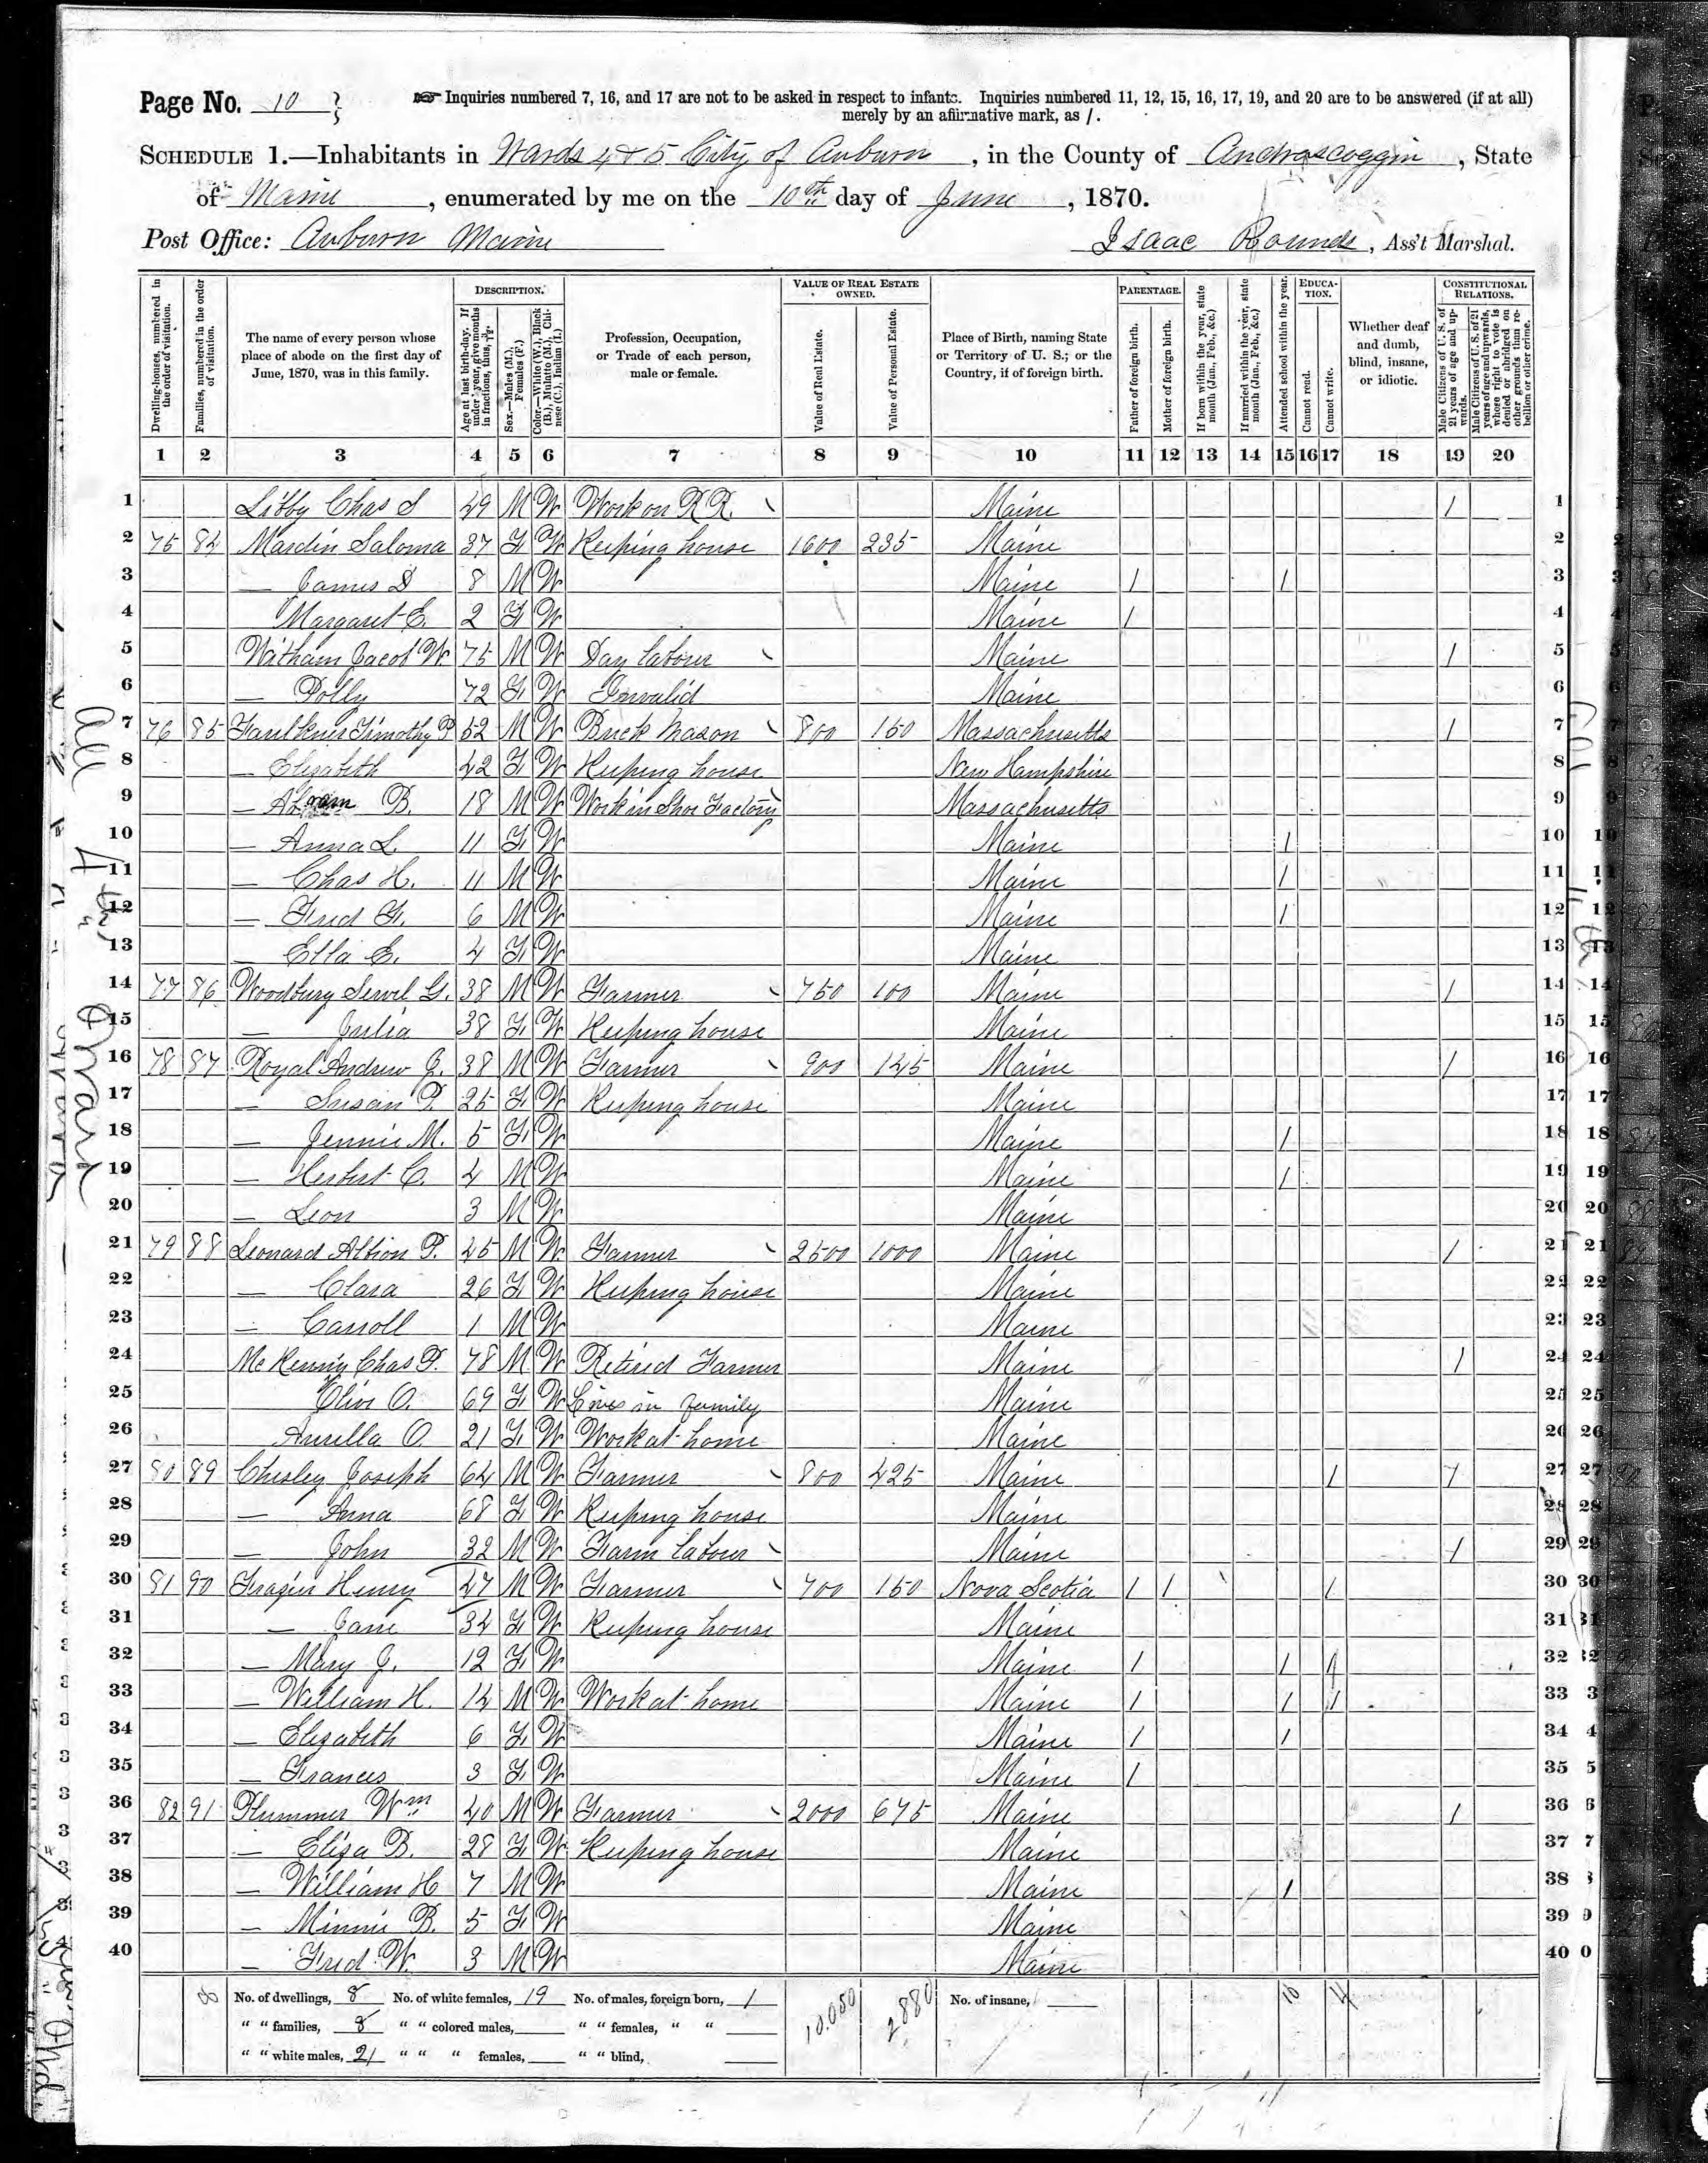 Page No. 10
Inquiries numbered 7, 16, and 17 are not to be asked in respect to infants. Inquiries numbered 11, 12, 15, 16, 17, 19, and 20 are to be answered (if at all)
merely by an affirmative mark, as /.
SCHEDULE 1.—Inhabitants in Wards 4 & 5 City of Auburn, in the County of Androscoggin, State
of Maine, enumerated by me on the 10th day of June, 1870.
Post Office: Auburn Maine
Isaac Rounds, Ass't Marshal.
Dwelling-houses, numbered in the order of visitation.
Families, numbered in the order of visitation.
The name of every person whose place of abode on the first day of June, 1870, was in this family.
DESCRIPTION.
Age at last birth-day. If under 1 year, give months in fractions, thus, 3/12.
Sex.—Males (M.), Females (F.)
Color.—White (W.), Black (B.), Mulatto (M.), Chinese (C.), Indian (I.)
Profession, Occupation, or Trade of each person, male or female.
VALUE OF REAL ESTATE OWNED.
Value of Real Estate.
Value of Personal Estate.
Place of Birth, naming State or Territory of U. S.; or the Country, if of foreign birth.
PARENTAGE.
Father of foreign birth.
Mother of foreign birth.
If born within the year, state month (Jan., Feb., &c.)
If married within the year, state month (Jan., Feb., &c.)
Attended school within the year.
EDUCATION.
Cannot read.
Cannot write.
Whether deaf and dumb, blind, insane, or idiotic.
CONSTITUTIONAL RELATIONS.
Male Citizens of U. S. of 21 years of age and upwards.
Male Citizens of U. S. of 21 years of age and upwards, whose right to vote is denied or abridged on other grounds than rebellion or other crime.
1 2 3 4 5 6 7 8 9 10 11 12 13 14 15 16 17 18 19 20
1 Libby Chas S 49 M W Work on R R. Maine / 1
2 75 84 Mardin Saloma 37 F W Keeping house 1600 235 Maine 2
3 — James D 8 M W Maine / / 3
4 Margaret E. 2 F W Maine / 4
5 Witham Jacob W 75 M W Day labour Maine / 5
6 — Polly 72 F W Invalid Maine 6
7 76 85 Faulkner Timothy P 52 M W Brick Mason 800 150 Massachusetts / 7
8 — Elizabeth 42 F W Keeping house New Hampshire 8
9 — Abram B. 18 M W Work in Shoe Factory Massachusetts 9
10 — Anna L. 11 F W Maine / 10
11 — Chas H. 11 M W Maine / 11
12 — Fred F. 6 M W Maine / 12
13 — Ella E. 4 F W Maine 13
14 77 86 Woodbury Sewel G. 38 M W Farmer 750 100 Maine / 14
15 — Julia 38 F W Keeping house Maine 15
16 78 87 Royal Andrew J. 38 M W Farmer 900 145 Maine / 16
17 — Susan P. 25 F W Keeping house Maine 17
18 — Jennie M. 5 F W Maine / 18
19 — Herbert C. 4 M W Maine / 19
20 — Leon 3 M W Maine 20
21 79 88 Leonard Albion P. 45 M W Farmer 2500 1000 Maine / 21
22 — Clara 26 F W Keeping house Maine 22
23 — Carroll 1 M W Maine 23
24 McKenny Chas P. 78 M W Retired Farmer Maine / 24
25 Olive O. 69 F W Lives in family Maine 25
26 Aurella O. 21 F W Work at home Maine 26
27 80 89 Chesley Joseph 64 M W Farmer 800 425 Maine / / 27
28 — Anna 68 F W Keeping house Maine 28
29 — John 32 M W Farm labour Maine / 29
30 81 90 Frazier Henry 47 M W Farmer 700 150 Nova Scotia / / / 30
31 — Jane 34 F W Keeping house Maine 31
32 — Mary J. 12 F W Maine / / / 32
33 — William H. 14 M W Work at home Maine / / / 33
34 — Elizabeth 6 F W Maine / / 34
35 — Frances 3 F W Maine / 35
36 82 91 Plummer Wm 40 M W Farmer 2000 675 Maine / 36
37 — Eliza B. 28 F W Keeping house Maine 37
38 — William H 7 M W Maine / 38
39 — Minnie B. 5 F W Maine 39
40 — Fred W. 3 M W Maine 40
8 No. of dwellings, 8 No. of white females, 19 No. of males, foreign born, 1 10.050 2880 No. of insane, 10 4
" " families, 8 " " colored males, " " females, " "
" " white males, 21 " " " females, " " blind,
All 4th Ward